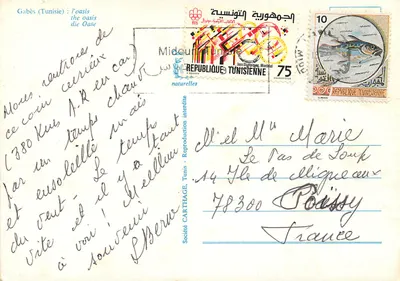 Gabès (Tunisie) : l'oasis
the oasis
die Oase
Nous rentrons de
ce coin curieux
(380 Kms A.R. en car)
par un temps chaud
et ensoleillé mais
du vent - Le temps
vite et il y a tant
à voir ! Meilleur
souvenir
naturelles
Société CARTHAGE, Tunis - Reproduction interdite
الجمهورية التونسية
REPUBLIQUE TUNISIENNE
75
10
REPUBLIQUE TUNISIENNE
M. et Mme Marie
Le Pas de Loup
14 Ile de Migneaux
78300 Poissy
France